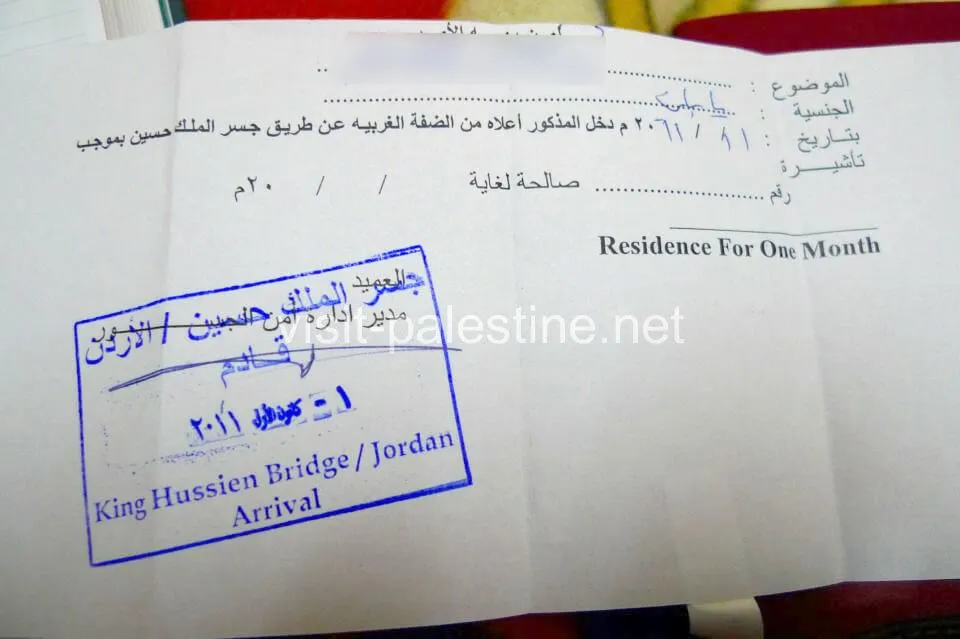 الموضوع : ..
الجنسية :
بتاريخ : ١ / ١ / ٢٠ م دخل المذكور أعلاه من الضفة الغربيه عن طريق جسر الملك حسين بموجب
تأشيرة
رقم صالحة لغاية / / ٢٠م
Residence For One Month
العميد
مدير ادارة أمن الجسور
جسر الملك حسين / الأردن
قادم
١ - كانون الأول ٢٠١١
King Hussien Bridge / Jordan
Arrival
visit-palestine.net